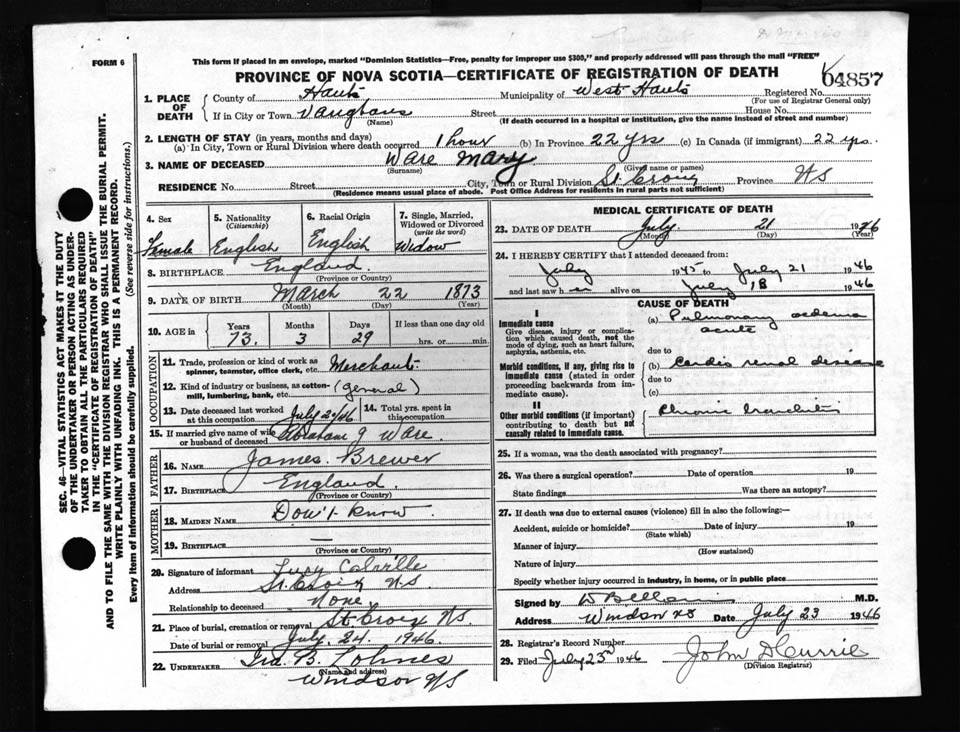 FORM 6
This form if placed in an envelope, marked "Dominion Statistics—Free, penalty for improper use $300," and properly addressed will pass through the mail "FREE"
PROVINCE OF NOVA SCOTIA—CERTIFICATE OF REGISTRATION OF DEATH
04857
1. PLACE OF DEATH
County of Hants Municipality of West Hants Registered No.
(For use of Registrar General only)
If in City or Town Vaughans Street House No.
(Name) (If death occurred in a hospital or institution, give the name instead of street and number)
2. LENGTH OF STAY (in years, months and days)
(a) In City, Town or Rural Division where death occurred 1 hour (b) In Province 22 yrs (c) In Canada (if immigrant) 22 yrs.
3. NAME OF DECEASED Ware Mary
(Surname) (Given name or names)
RESIDENCE No. Street City, Town or Rural Division St. Croix Province NS
(Residence means usual place of abode. Post Office Address for residents in rural parts not sufficient)
4. Sex Female
5. Nationality (Citizenship) English
6. Racial Origin English
7. Single, Married, Widowed or Divorced (write the word) Widow
8. BIRTHPLACE England.
(Province or Country)
9. DATE OF BIRTH March 22 1873
(Month) (Day) (Year)
10. AGE in Years 73. Months 3 Days 29 If less than one day old hrs. or min.
OCCUPATION
11. Trade, profession or kind of work as spinner, teamster, office clerk, etc. Merchant.
12. Kind of industry or business, as cotton-mill, lumbering, bank, etc. (general)
13. Date deceased last worked at this occupation July 20/46 14. Total yrs. spent in this occupation
15. If married give name of wife or husband of deceased Abraham J Ware
FATHER
16. NAME James Brewer
17. BIRTHPLACE England.
(Province or Country)
MOTHER
18. MAIDEN NAME Don't know
19. BIRTHPLACE —
(Province or Country)
20. Signature of informant Lucy
Address St. Croix NS
Relationship to deceased None.
21. Place of burial, cremation or removal St Croix NS.
Date of burial or removal July 24. 1946.
22. UNDERTAKER Ira B. Lohnes
(Name and address)
Windsor NS
MEDICAL CERTIFICATE OF DEATH
23. DATE OF DEATH July 21 1946
(Month) (Day) (Year)
24. I HEREBY CERTIFY that I attended deceased from:
July 1945 to July 21 1946
and last saw h er alive on July 18 1946
CAUSE OF DEATH
I
Immediate cause
Give disease, injury or complication which caused death, not the mode of dying, such as heart failure, asphyxia, asthenia, etc.
(a) Pulmonary oedema acute
due to
Morbid conditions, if any, giving rise to immediate cause (stated in order proceeding backwards from immediate cause).
(b) Cardio renal disease
due to
(c)
II
Other morbid conditions (if important) contributing to death but not causally related to immediate cause.
Chronic bronchitis
25. If a woman, was the death associated with pregnancy?
26. Was there a surgical operation? Date of operation 19
State findings Was there an autopsy?
27. If death was due to external causes (violence) fill in also the following:—
Accident, suicide or homicide? Date of injury 19
(State which)
Manner of injury
(How sustained)
Nature of injury
Specify whether injury occurred in industry, in home, or in public place
Signed by M.D.
Address Windsor NS Date July 23 1946
28. Registrar's Record Number
29. Filed July 23rd 1946 John D Currie
(Division Registrar)
SEC. 46—VITAL STATISTICS ACT MAKES IT THE DUTY
OF THE UNDERTAKER OR PERSON ACTING AS UNDER-
TAKER TO OBTAIN ALL THE PARTICULARS REQUIRED
IN THE "CERTIFICATE OF REGISTRATION OF DEATH"
AND TO FILE THE SAME WITH THE DIVISION REGISTRAR WHO SHALL ISSUE THE BURIAL PERMIT.
WRITE PLAINLY WITH UNFADING INK. THIS IS A PERMANENT RECORD.
Every item of Information should be carefully supplied. (See reverse side for instructions.)